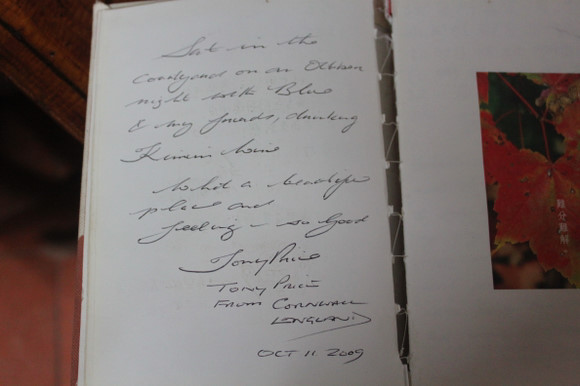 Sat in the
Courtyard on an October
night with Blue
& my friends, drinking
wine
What a beautiful
place and
feeling - so Good
Tony Price
TONY PRICE
FROM CORNWALL
ENGLAND
OCT 11 2009
難分難解